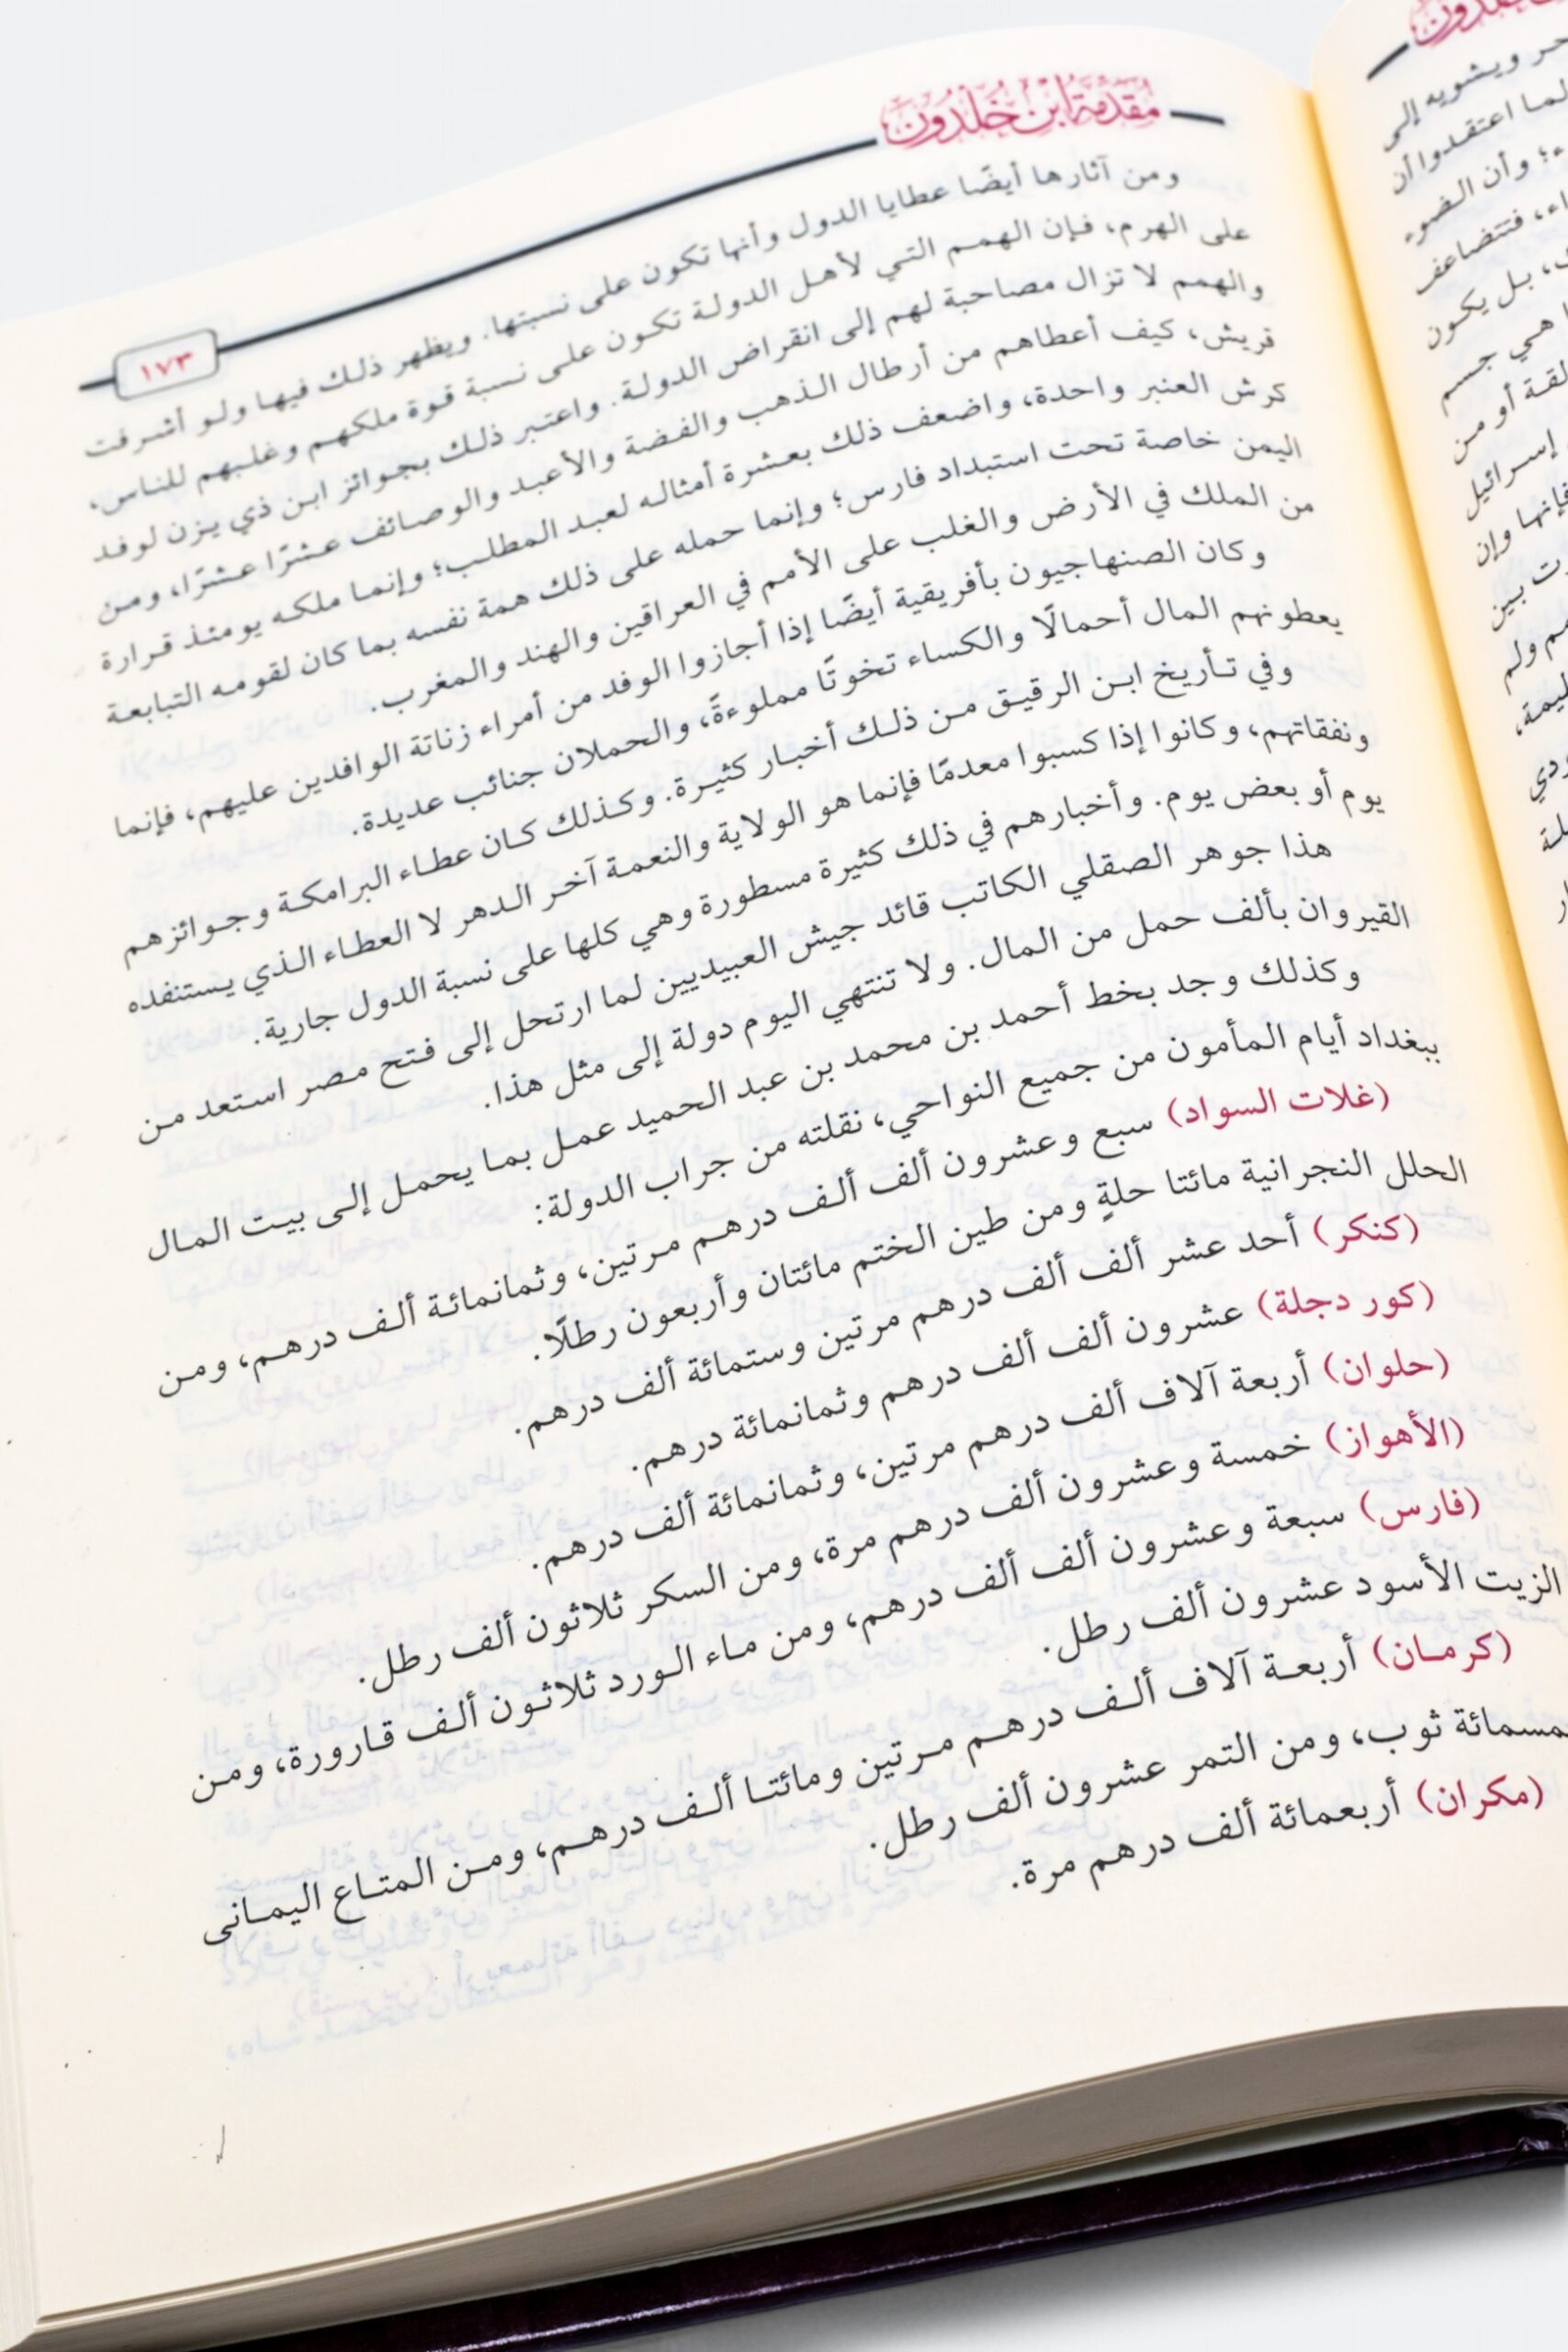 مقدمة ابن خلدون
١٧٣
ومن آثارها أيضًا عطايا الدول وأنها تكون على نسبتها. ويظهر ذلك فيها ولو أشرفت
على الهرم، فإن الهمم التي لأهل الدولة تكون على نسبة قوة ملكهم وغلبهم للناس،
والهمم لا تزال مصاحبة لهم إلى انقراض الدولة. واعتبر ذلك بجوائز ابن ذي يزن لوفد
قريش، كيف أعطاهم من أرطال الذهب والفضة والأعبد والوصائف عشرًا عشرًا، ومن
كرش العنبر واحدة، واضعف ذلك بعشرة أمثاله لعبد المطلب؛ وإنما ملكه يومئذ قرارة
اليمن خاصة تحت استبداد فارس؛ وإنما حمله على ذلك همة نفسه بما كان لقومه التبابعة
من الملك في الأرض والغلب على الأمم في العراقين والهند والمغرب.
وكان الصنهاجيون بأفريقية أيضًا إذا أجازوا الوفد من أمراء زناتة الوافدين عليهم، فإنما
يعطونهم المال أحمالًا والكساء تخوتًا مملوءةً، والحملان جنائب عديدة.
وفي تأريخ ابن الرقيق من ذلك أخبار كثيرة. وكذلك كان عطاء البرامكة وجوائزهم
ونفقاتهم، وكانوا إذا كسبوا معدمًا فإنما هو الولاية والنعمة آخر الدهر لا العطاء الذي يستنفده
يوم أو بعض يوم. وأخبارهم في ذلك كثيرة مسطورة وهي كلها على نسبة الدول جارية.
هذا جوهر الصقلي الكاتب قائد جيش العبيديين لما ارتحل إلى فتح مصر استعد من
القيروان بألف حمل من المال. ولا تنتهي اليوم دولة إلى مثل هذا.
وكذلك وجد بخط أحمد بن محمد بن عبد الحميد عمل بما يحمل إلى بيت المال
ببغداد أيام المأمون من جميع النواحي، نقلته من جراب الدولة:
(غلات السواد) سبع وعشرون ألف ألف درهم مرتين، وثمانمائة ألف درهم، ومن
الحلل النجرانية مائتا حلةٍ ومن طين الختم مائتان وأربعون رطلًا.
(كنكر) أحد عشر ألف ألف درهم مرتين وستمائة ألف درهم.
(كور دجلة) عشرون ألف ألف درهم وثمانمائة درهم.
(حلوان) أربعة آلاف ألف درهم مرتين، وثمانمائة ألف درهم.
(الأهواز) خمسة وعشرون ألف درهم مرة، ومن السكر ثلاثون ألف رطل.
(فارس) سبعة وعشرون ألف ألف درهم، ومن ماء الورد ثلاثون ألف قارورة، ومن
الزيت الأسود عشرون ألف رطل.
(كرمان) أربعة آلاف ألف درهم مرتين ومائتا ألف درهم، ومن المتاع اليمانى
ثوب، ومن التمر عشرون ألف رطل.
(مكران) أربعمائة ألف درهم مرة.
ويشويه إلى
اعتقدوا أن
وأن الضوء
فتتضاعف
بل يكون
هي جسم
أو من
إسرائيل
فإنها وإن
بين
ولم